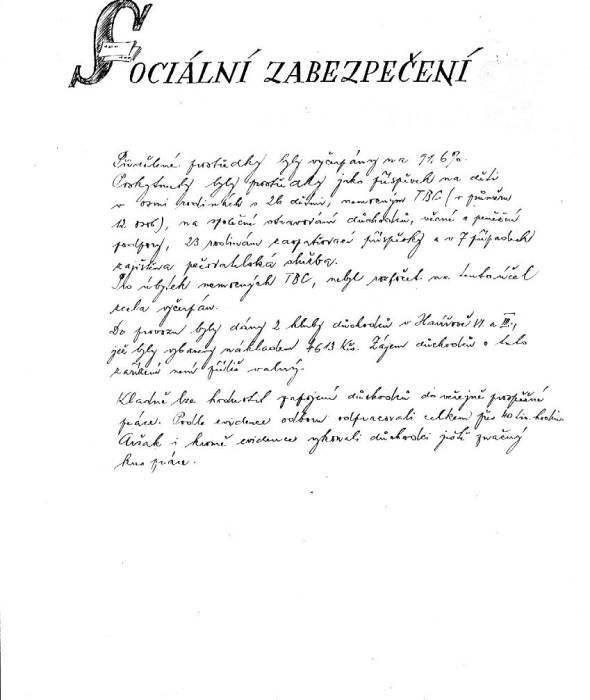 SOCIÁLNÍ ZABEZPEČENÍ
Přidělené prostředky byly vyčerpány na 91,6%.
Poskytnuty byly prostředky jako příspěvek na děti
v osmi rodinách s 26 dětmi, nemocným TBC (v průměru
12 osob), na společné stravování důchodců, věcné a peněžní
podpory, 23 rodinám zaopatřovací příspěvky a v 7 případech
zajištěna pečovatelská služba.
Pro úbytek nemocných TBC, nebyl rozpočet na tento účel
zcela vyčerpán.
Do provozu byly dány 2 kluby důchodců v Havířově VI. a III.,
jež byly vybaveny nákladem 7613 Kčs. Zájem důchodců o tato
zařízení není příliš valný.
Kladně lze hodnotit zapojení důchodců do veřejně prospěšné
práce. Podle evidence odboru odpracovali celkem přes 40 tis. hodin.
Avšak i kromě evidence vykonali důchodci ještě značný
kus práce.